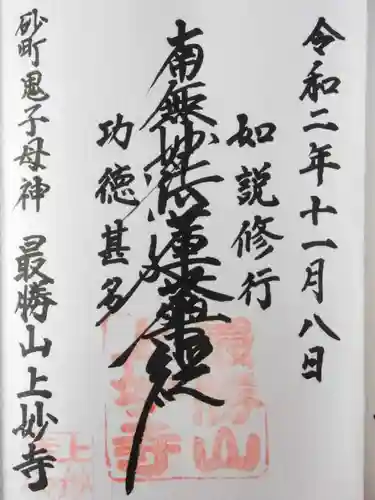 令和二年十一月八日
如説修行
南無妙法蓮華経
功徳甚多
砂町鬼子母神 最勝山上妙寺
最勝山
上妙寺